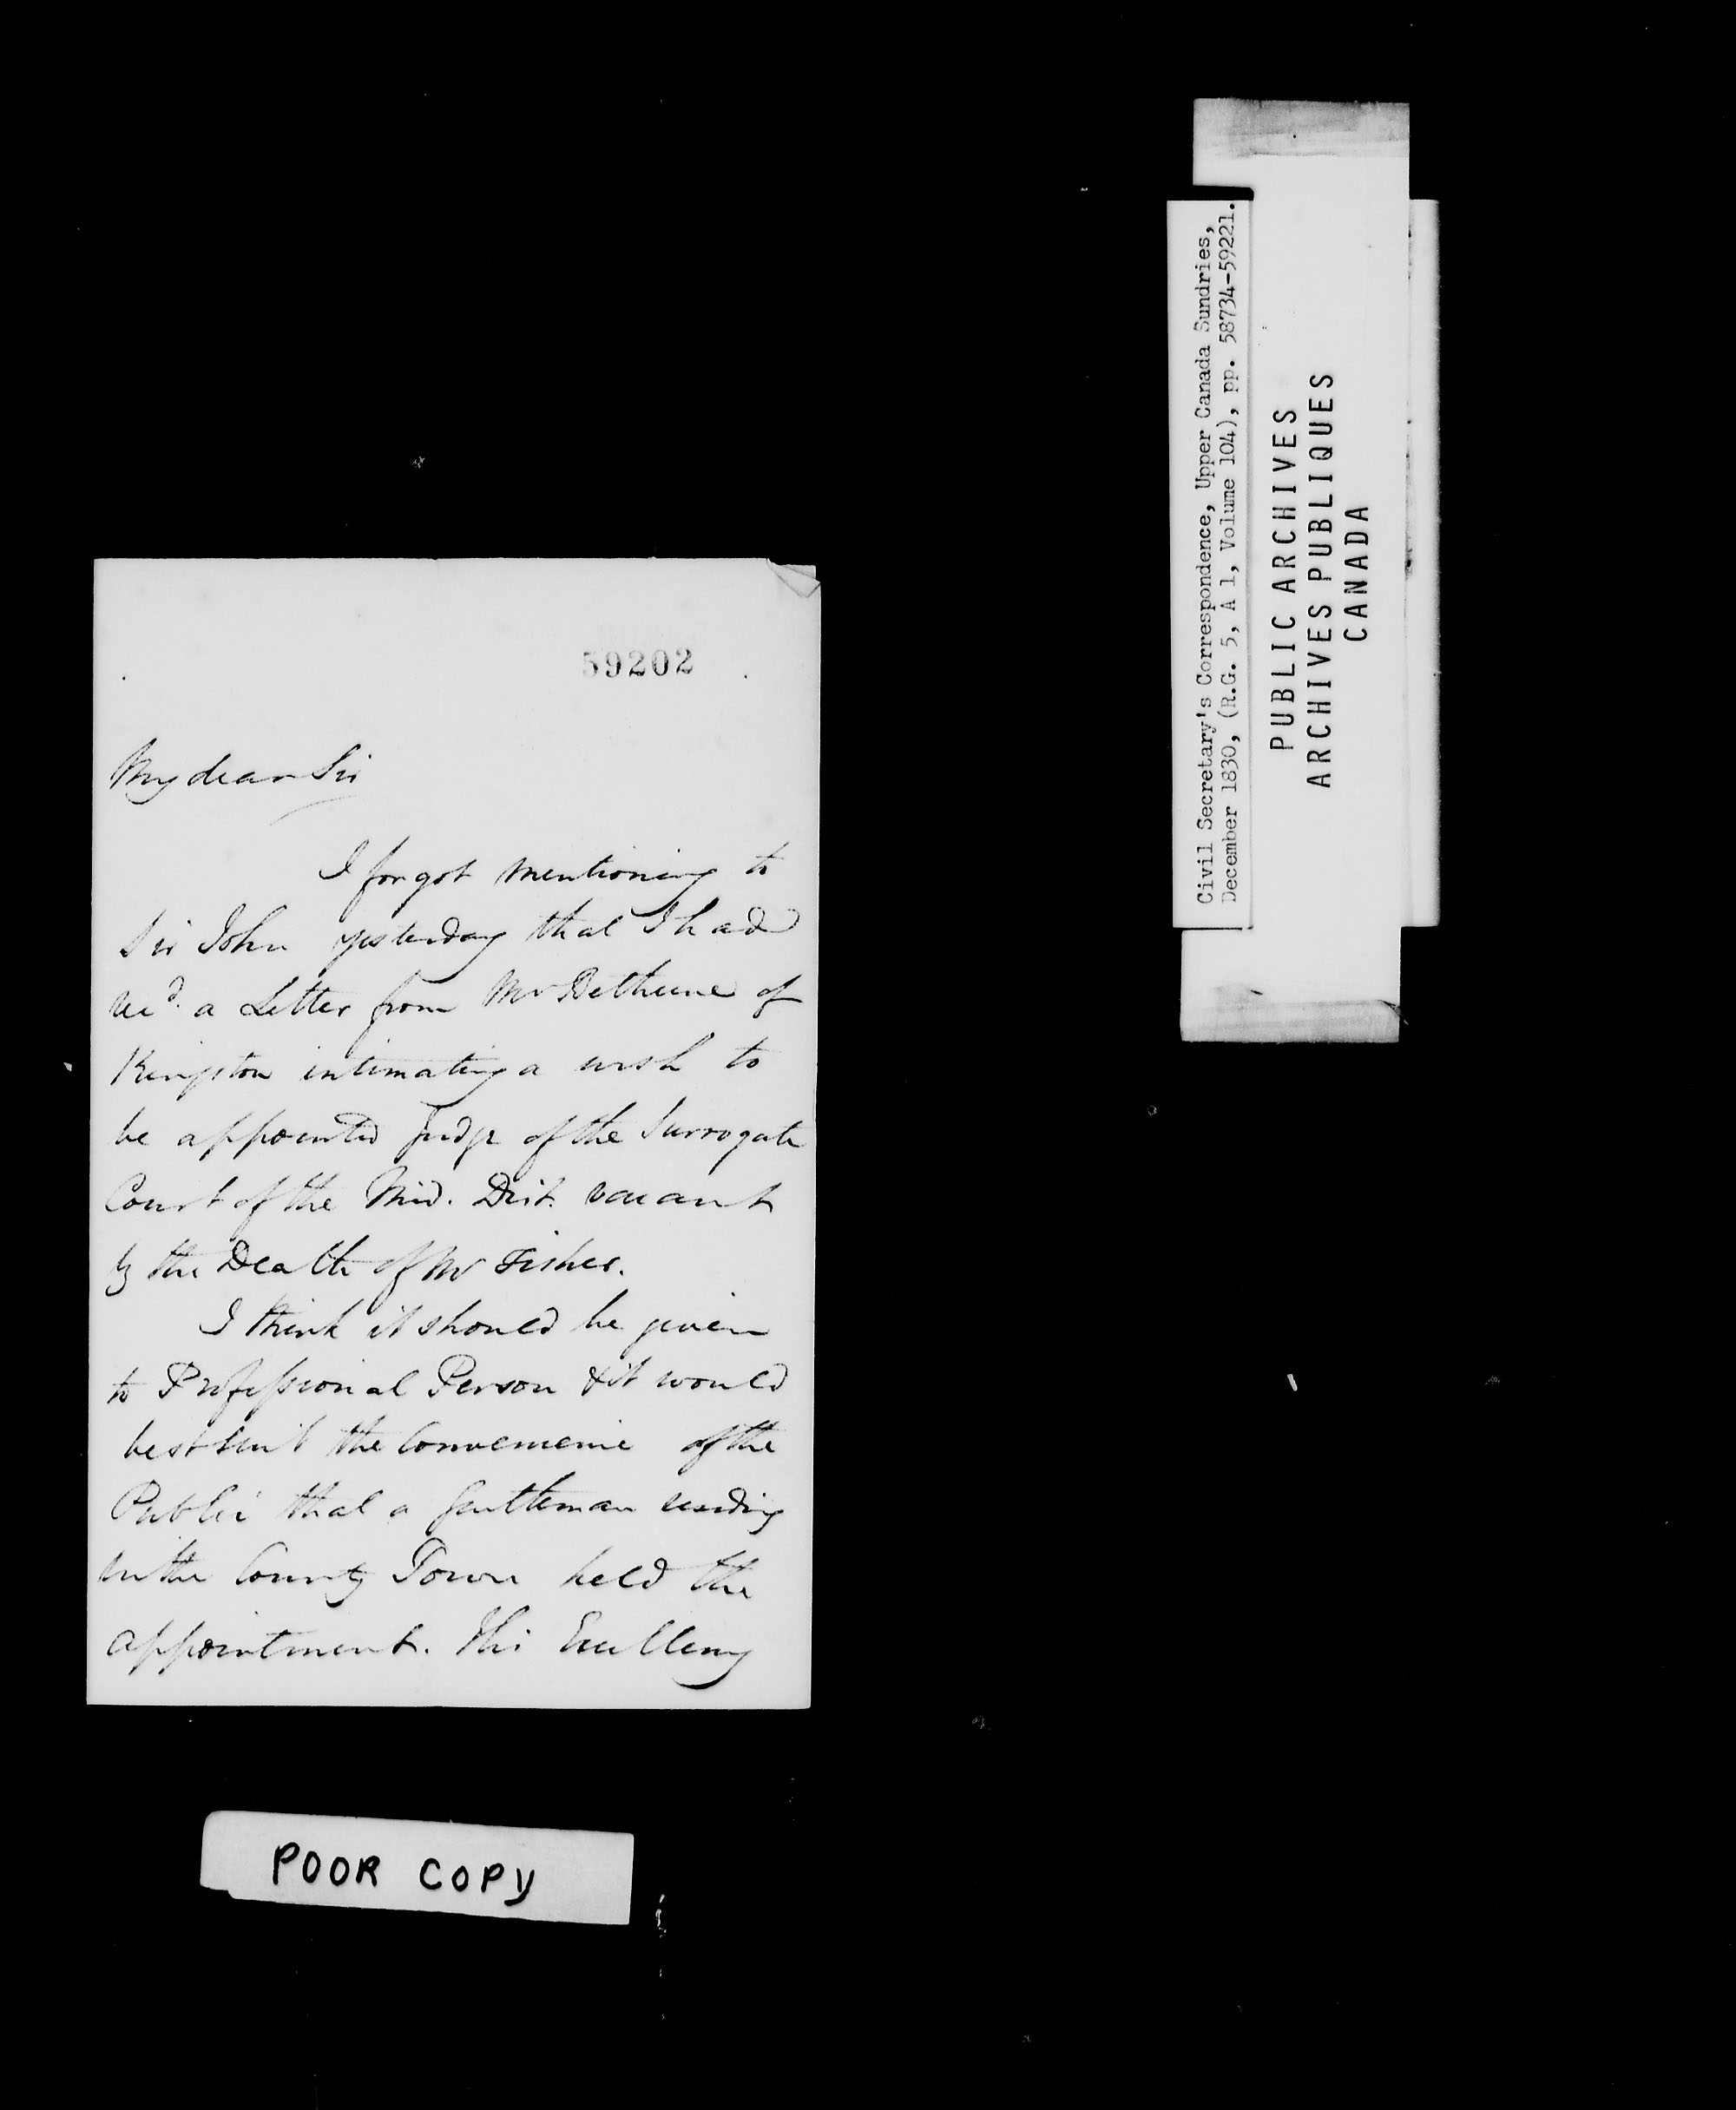 59202
My dear Sir
I forgot mentioning to
Sir John yesterday that I had
recd. a Letter from Mr Bethune of
Kingston intimating a wish to
be appointed Judge of the Surrogate
Court of the Mid. Dist. vacant
by the Death of Mr Fisher.
I think it should be given
to Professional Person & it would
best suit the Convenience of the
Public that a Gentleman residing
in the County Town held the
appointment. His Excellency
POOR COPY
Civil Secretary's Correspondence, Upper Canada Sundries,
December 1830, (R.G. 5, A 1, Volume 104), pp. 58734-59221.
PUBLIC ARCHIVES
ARCHIVES PUBLIQUES
CANADA